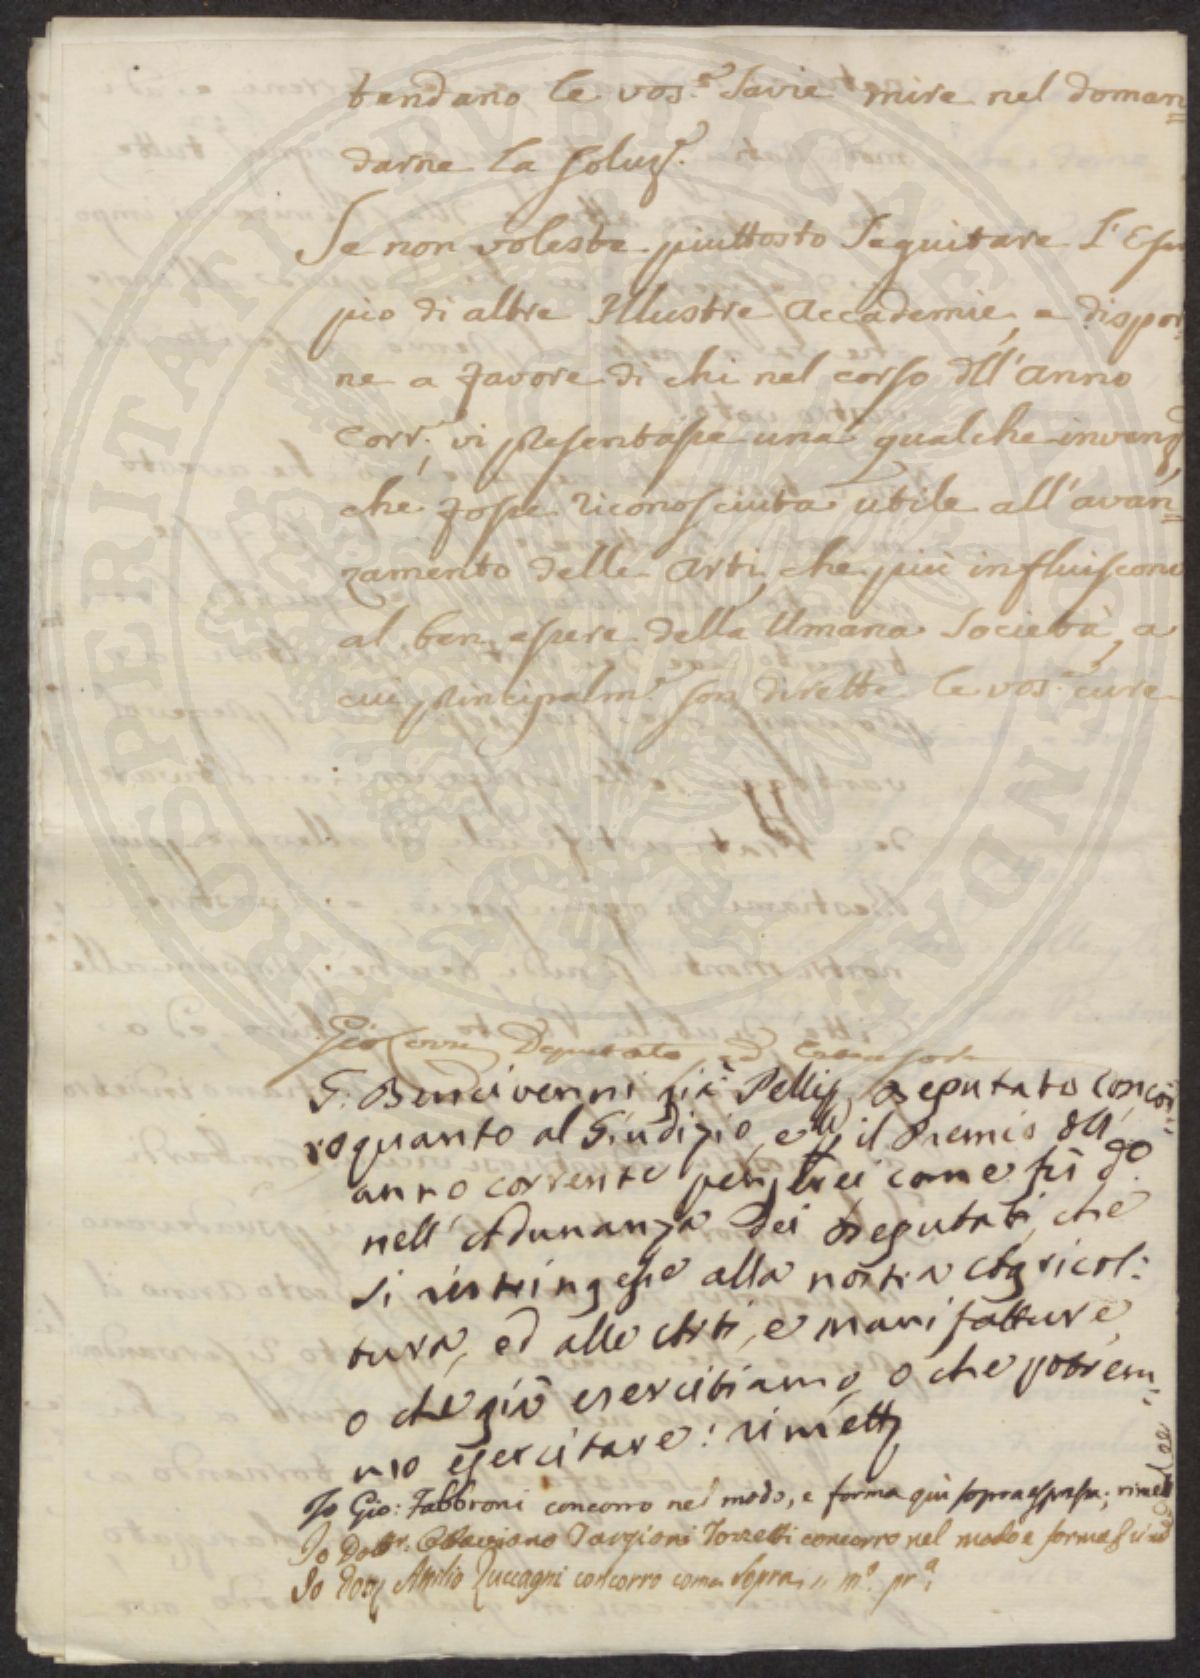 tendano le vos.e Savie mire nel doman=
darne la soluz.e
Se non voleste piuttosto Seguitare l'Esem
pio di altre Illustre Accademie, e dispor=
ne a favore di chi nel corso dell'anno
corr.e, vi presentasse una qualche invenz.e
che fosse riconosciuta utile all'avan=
zamento delle Arti, che più influiscono
al ben essere della Umana Società, a
cui principalm.e son dirette le vos.e cure
Deputato ed
G. Bencivenni già Pelli, Deputato concor=
ro quanto al Giudizio, e il Premio dell'
anno corrente come fù d.o
nell'Adunanza dei Deputati, che
si ristringesse alla nostra Agricol:
tura, ed alle Arti, e manifatture,
o che già esercitiamo, o che potrem=
mo esercitare:
Io Gio: Fabbroni concorro nel modo, e forma qui sopra espressa;
Io Dott.r Ottaviano Targioni Tozzetti concorro nel modo e forma
Io Dott. Attilio Zuccagni concorro come sopra, m.o pr.a